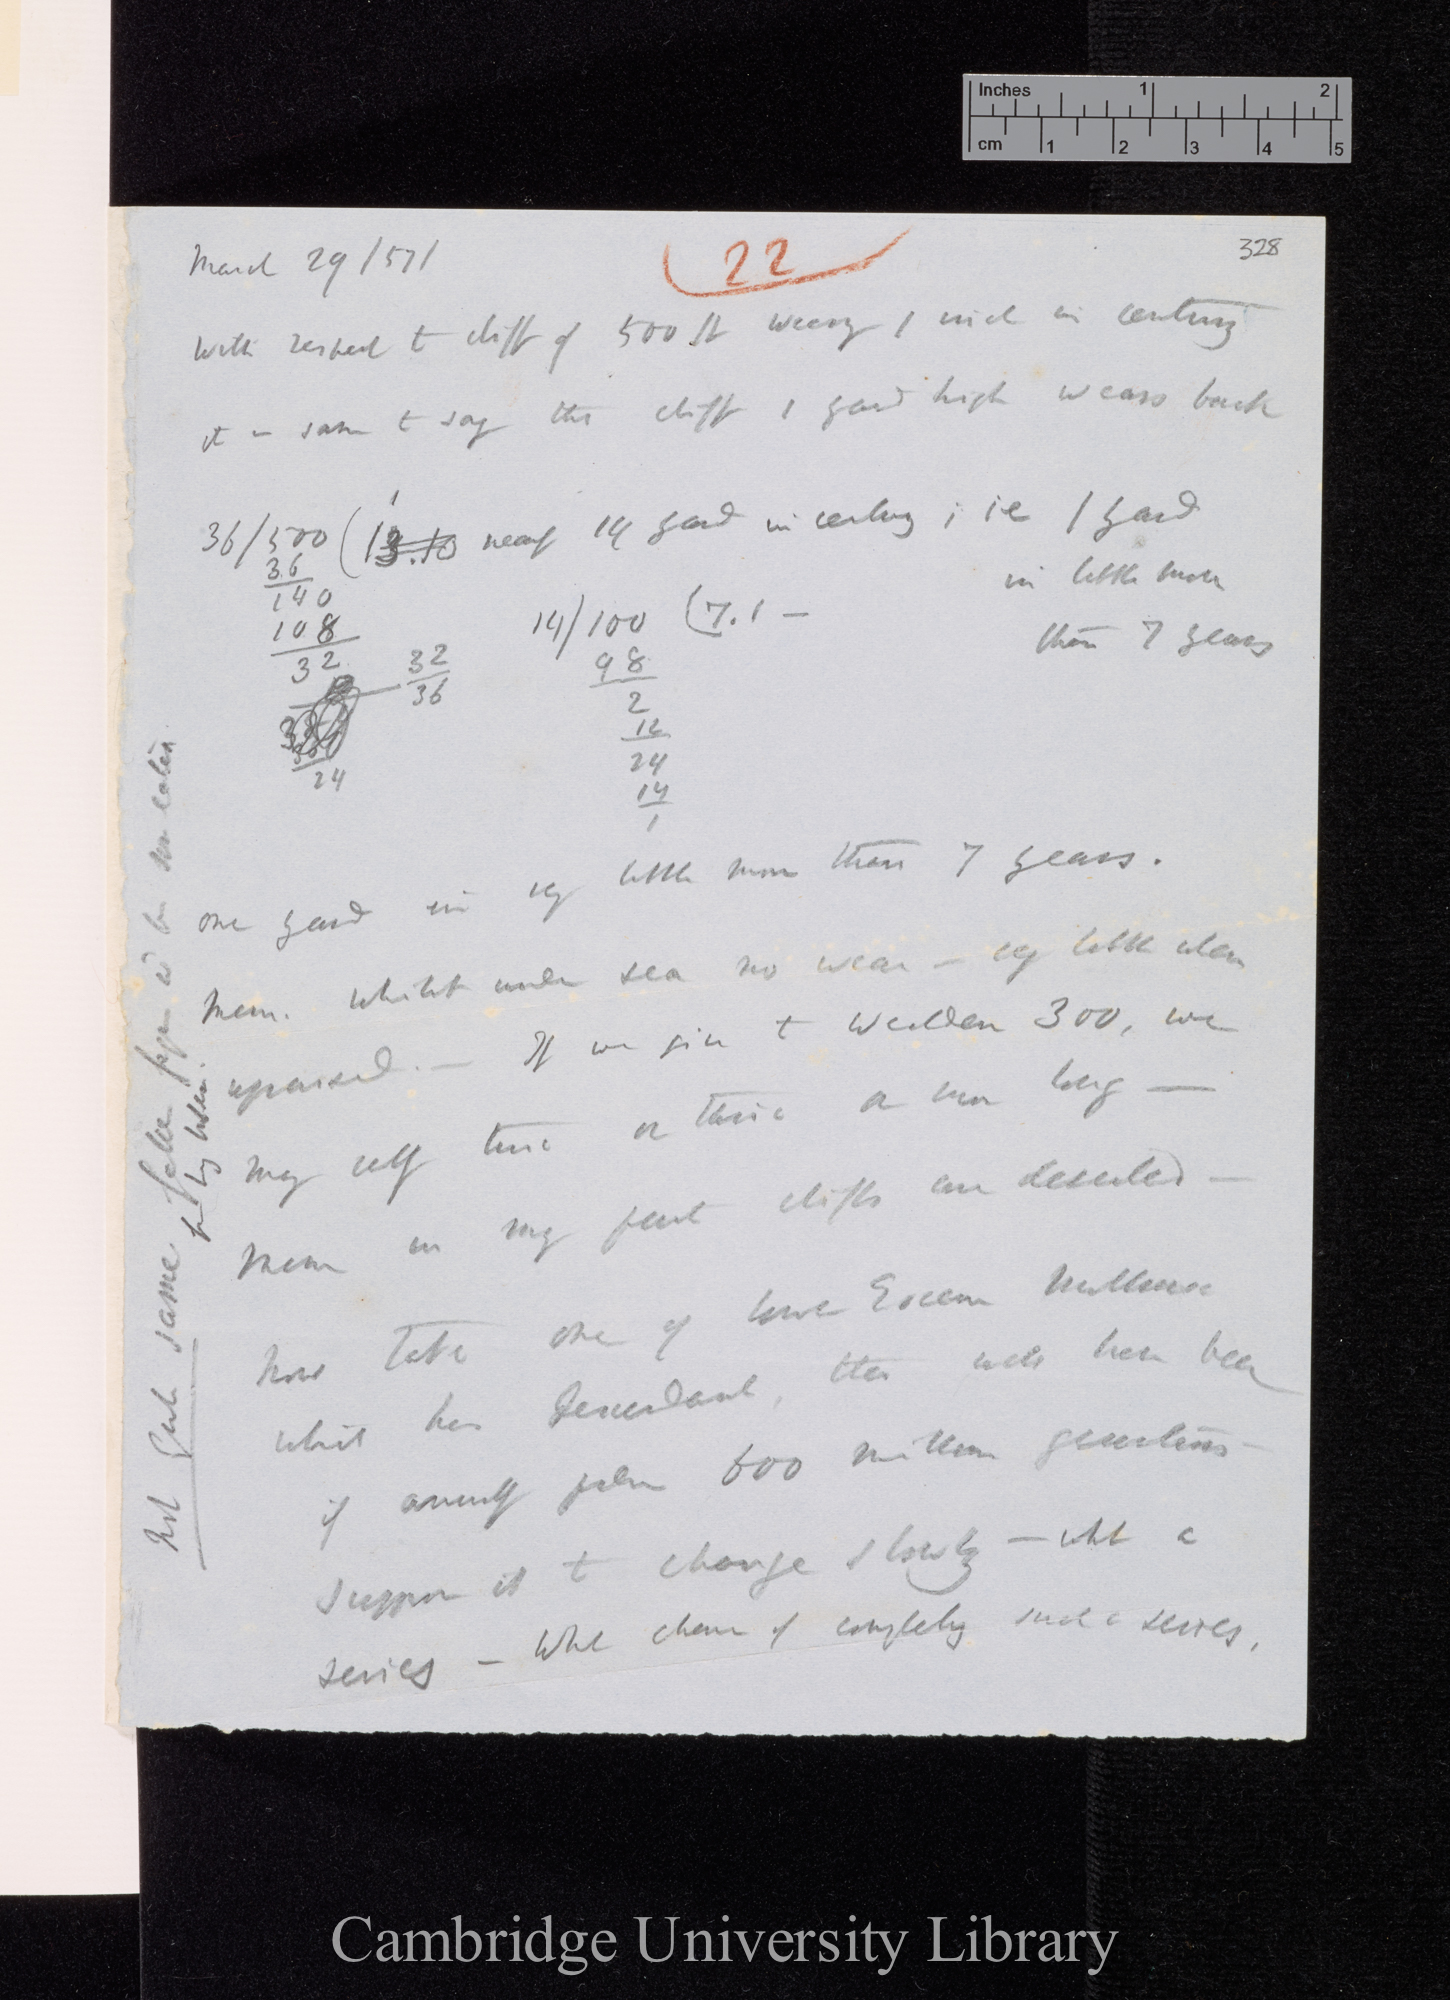 Inches 1 2
cm 1 2 3 4 5
328
22
March 29/57/
With respect to cliff of 500 ft wearing 1 inch in century
it is same to say this cliff 1 yard high wears back
36/500 (13 nearly 14 yard in century; ie 1 yard
36
140
108
32
32
36
24
in little more
than 7 years
14/100 (7.1 —
98
2
12
24
14
1
one yard in every little more than 7 years.
Mem. whilst under sea no wear — very little when
upraised. — If we give to Wealden 300, we
may safely twice or thrice as long —
Mem in my part cliffs are deserted —
Now take one of lower Eocene Mollusca
which has descendant, there must have been
if annually fallen 600 million generations
Suppose it to change slowly — what a
series — What chance of completing such a series.
same
Cambridge University Library